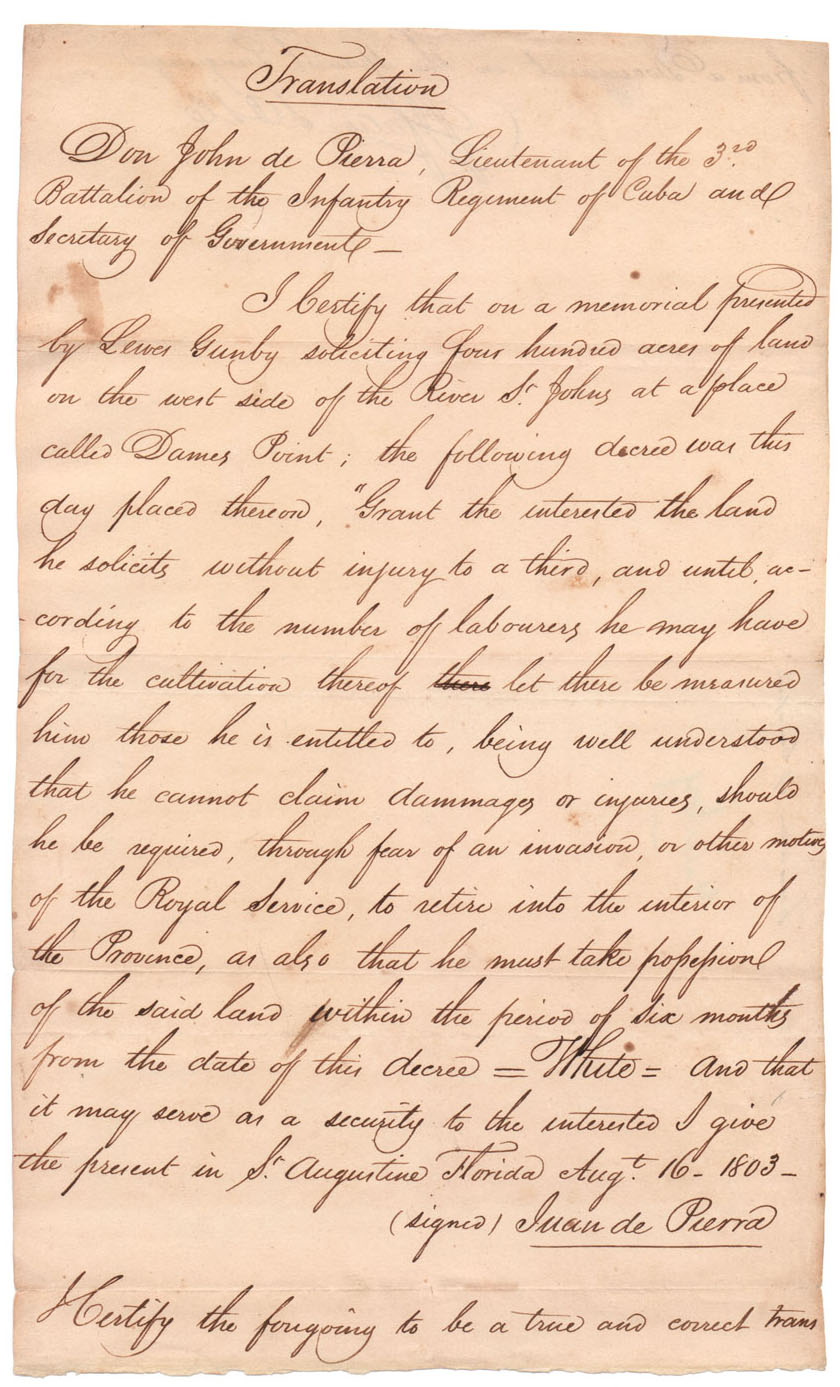 Translation
Don John de Pierra, Lieutenant of the 3rd
Battalion of the Infantry Regiment of Cuba and
Secretary of Government —
I Certify that on a memorial presented
by Lewes Gunby soliciting four hundred acres of land
on the west side of the River St Johns at a place
called Dames Point; the following decree was this
day placed thereon, "Grant the interested the land
he solicits without injury to a third, and until, ac-
-cording to the number of labourers he may have
for the cultivation thereof there let there be measured
him those he is entitled to, being well understood
that he cannot claim dammages or injuries, should
he be required, through fear of an invasion, or other motives
of the Royal Service, to retire into the interior of
the Province, as also that he must take possession
of the said land within the period of six months
from the date of this decree = White = And that
it may serve as a security to the interested I give
the present in St Augustine Florida Augt. 16 - 1803 -
(signed) Juan de Pierra
I Certify the foregoing to be a true and correct trans